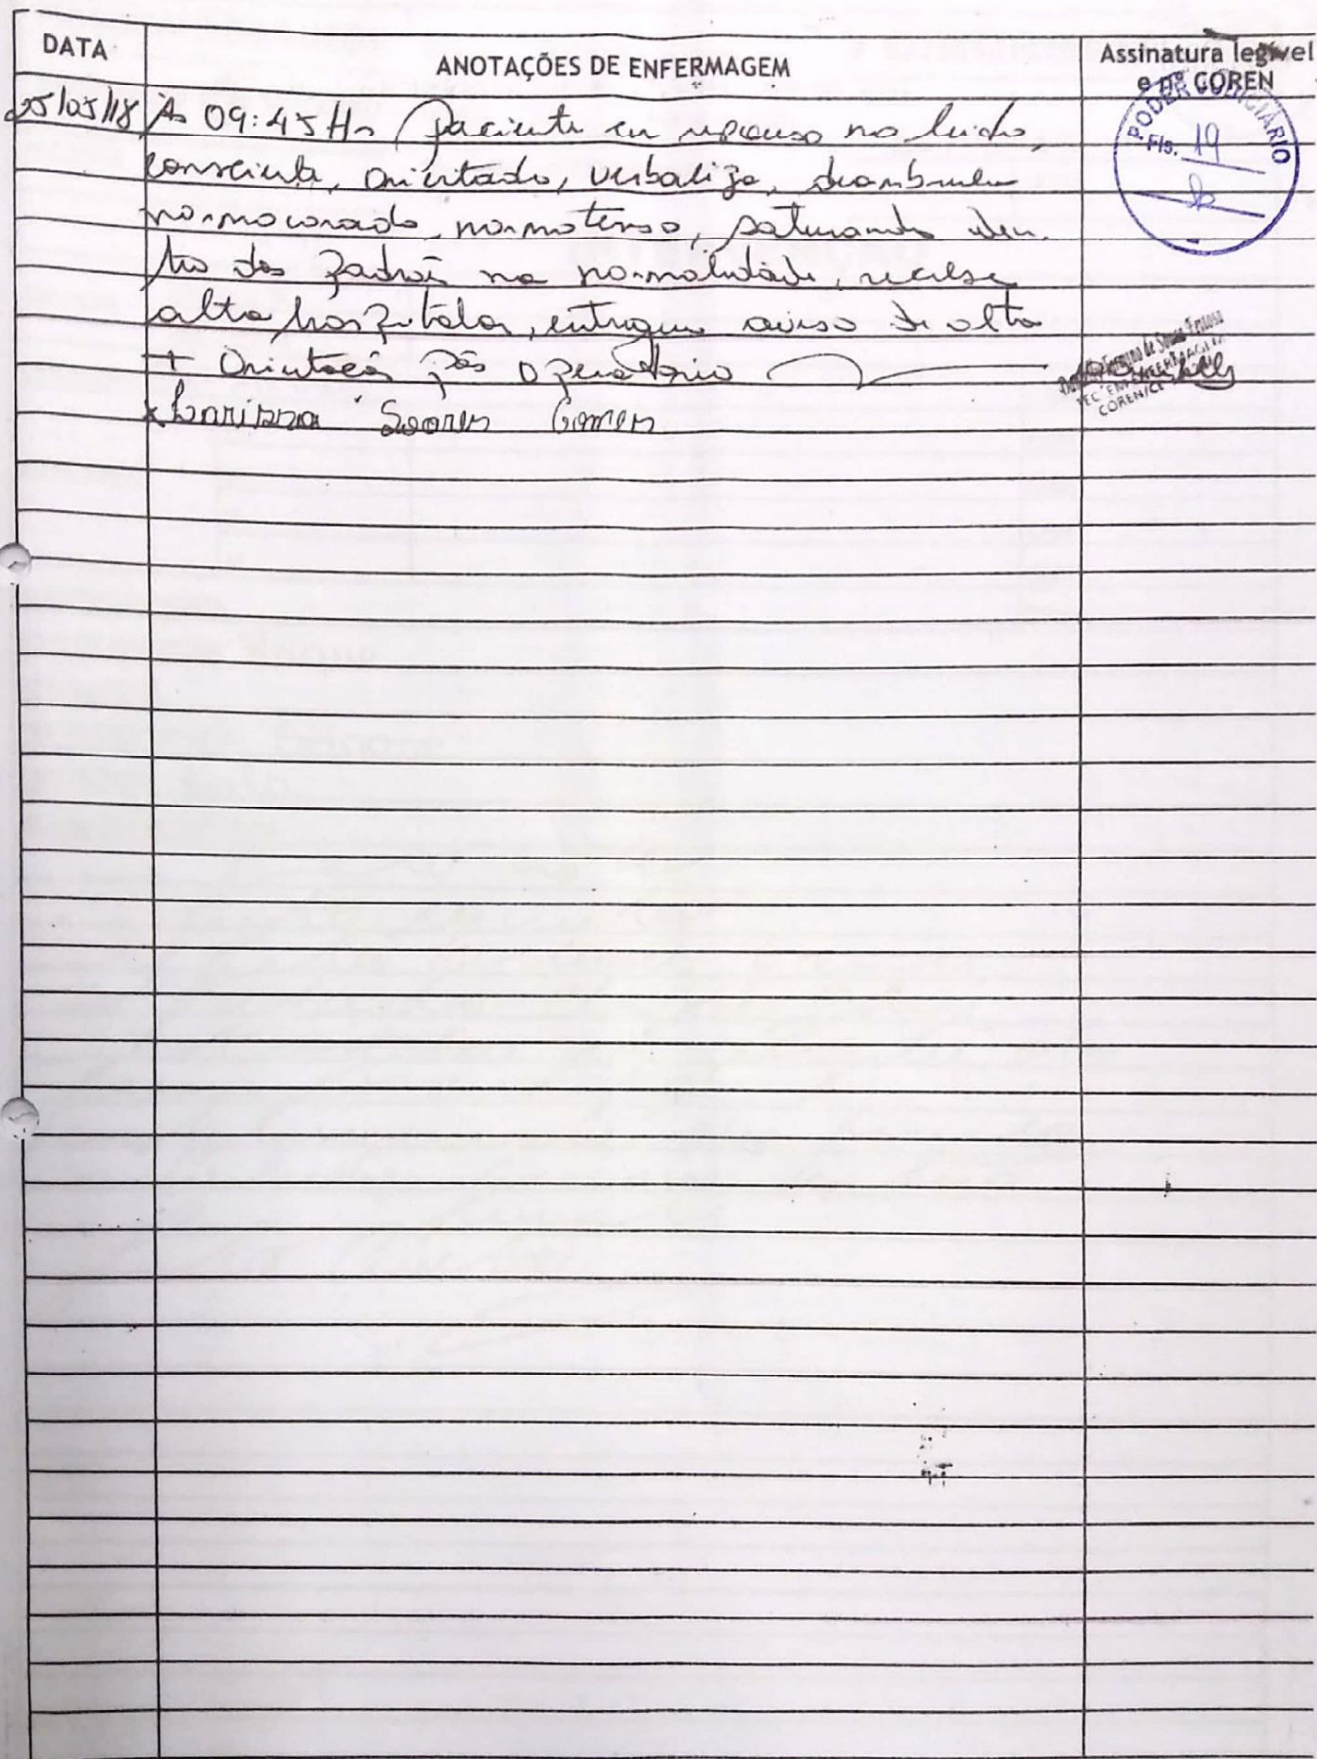 DATA
ANOTAÇÕES DE ENFERMAGEM
Assinatura legível
e nº COREN
25/05/18 Às 09:45Hs paciente em repouso no leito,
consciente, orientado, verbaliza, deambula
normocorado, normotenso, saturando den
tro dos padrões na normalidade, recebe
alta hospitalar, entregue aviso de alta
+ Orientação pós operatório
x Larissa Soares Gomes
PODER JUDICIÁRIO
Fls. 19
de Sousa
TEC. ENFERMAGEM
COREN/CE